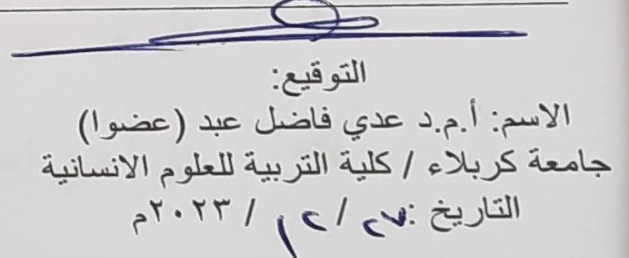 التوقيع:
الاسم: أ.م.د عدي فاضل عبد (عضوا)
جامعة كربلاء / كلية التربية للعلوم الانسانية
التاريخ: ٢٧ / ١٢ / ٢٠٢٣م